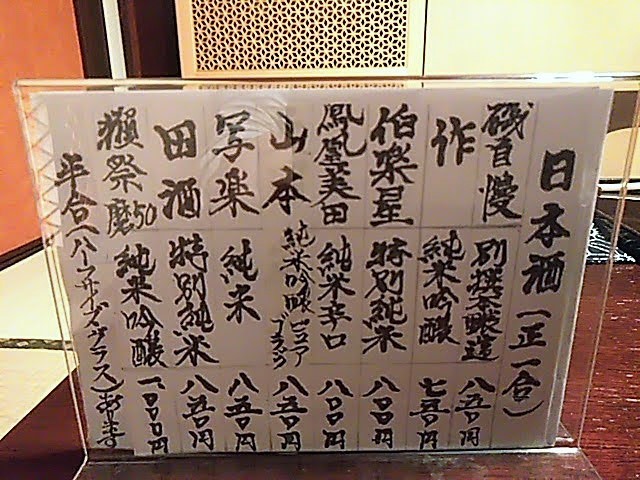 日本酒(正一合)
磯自慢 別撰本醸造 八五〇円
作 純米吟醸 七五〇円
伯楽星 特別純米 八〇〇円
鳳凰美田 純米辛口 八〇〇円
山本 純米吟醸ピュアブラック 八五〇円
写楽 純米 八五〇円
田酒 特別純米 八五〇円
獺祭磨50 純米吟醸 一、〇〇〇円
半合(ハーフサイズグラス)